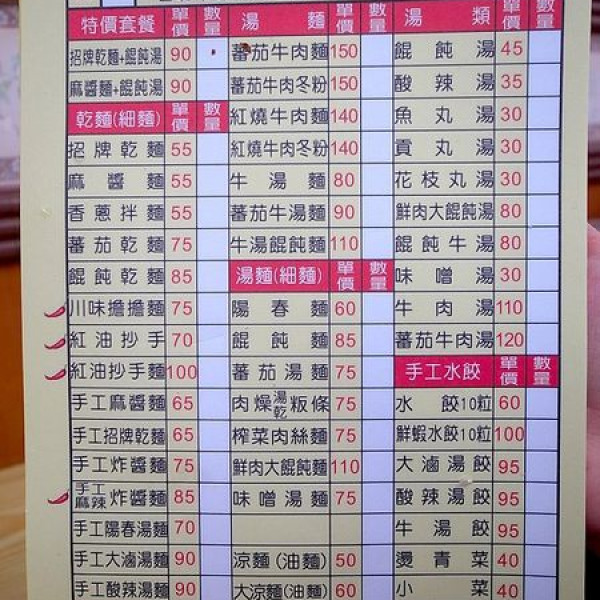 特價套餐 單價 數量
招牌乾麵+餛飩湯 90
麻醬麵+餛飩湯 90
乾麵(細麵) 單價 數量
招牌乾麵 55
麻醬麵 55
香蔥拌麵 55
蕃茄乾麵 75
餛飩乾麵 85
川味擔擔麵 75
紅油抄手 70
紅油抄手麵 100
手工麻醬麵 65
手工招牌乾麵 65
手工炸醬麵 75
手工麻辣炸醬麵 85
手工陽春湯麵 70
手工大滷湯麵 90
手工酸辣湯麵 90
湯麵 單價 數量
蕃茄牛肉麵 150
蕃茄牛肉冬粉 150
紅燒牛肉麵 140
紅燒牛肉冬粉 140
牛湯麵 80
蕃茄牛湯麵 90
牛湯餛飩麵 110
湯麵(細麵) 單價 數量
陽春麵 60
餛飩麵 85
蕃茄湯麵 75
肉燥湯乾粄條 75
榨菜肉絲麵 75
鮮肉大餛飩麵 110
味噌湯麵 75
涼麵(油麵) 50
大涼麵(油麵) 60
湯類 單價 數量
餛飩湯 45
酸辣湯 35
魚丸湯 30
貢丸湯 30
花枝丸湯 30
鮮肉大餛飩湯 80
餛飩牛湯 80
味噌湯 30
牛肉湯 110
蕃茄牛肉湯 120
手工水餃 單價 數量
水餃10粒 60
鮮蝦水餃10粒 100
大滷湯餃 95
酸辣湯餃 95
牛湯餃 95
燙青菜 40
小菜 40